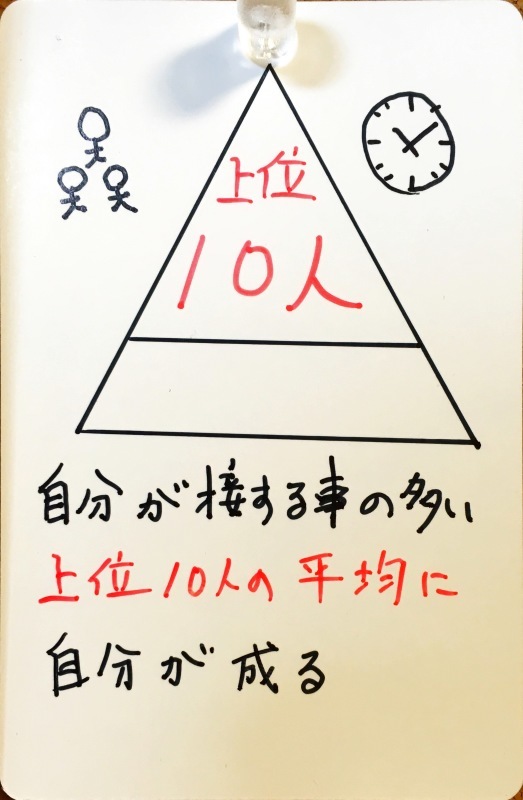 上位
10人
自分が接する事の多い
上位10人の平均に
自分が成る